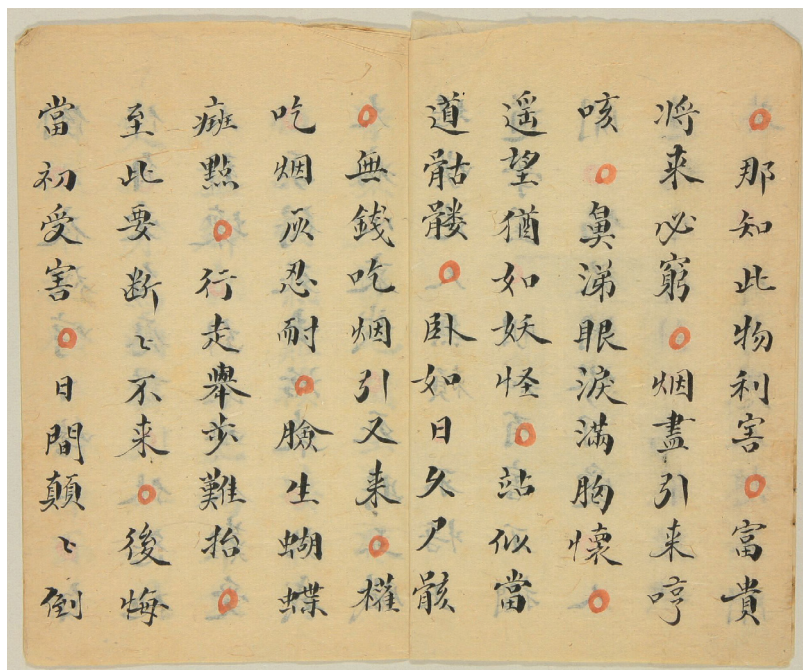 ○那知此物利害○富貴
将来必窮○烟盡引来哼
咳○鼻涕眼淚滿胸懷○
遥望猶如妖怪○站似當
道骷髏○卧如日久尸骸
○無錢吃烟引又来○權
吃烟灰忍耐○臉生蝴蝶
癍點○行走舉步難抬○
至此要断〻不来○後悔
當初受害○日間顛〻倒